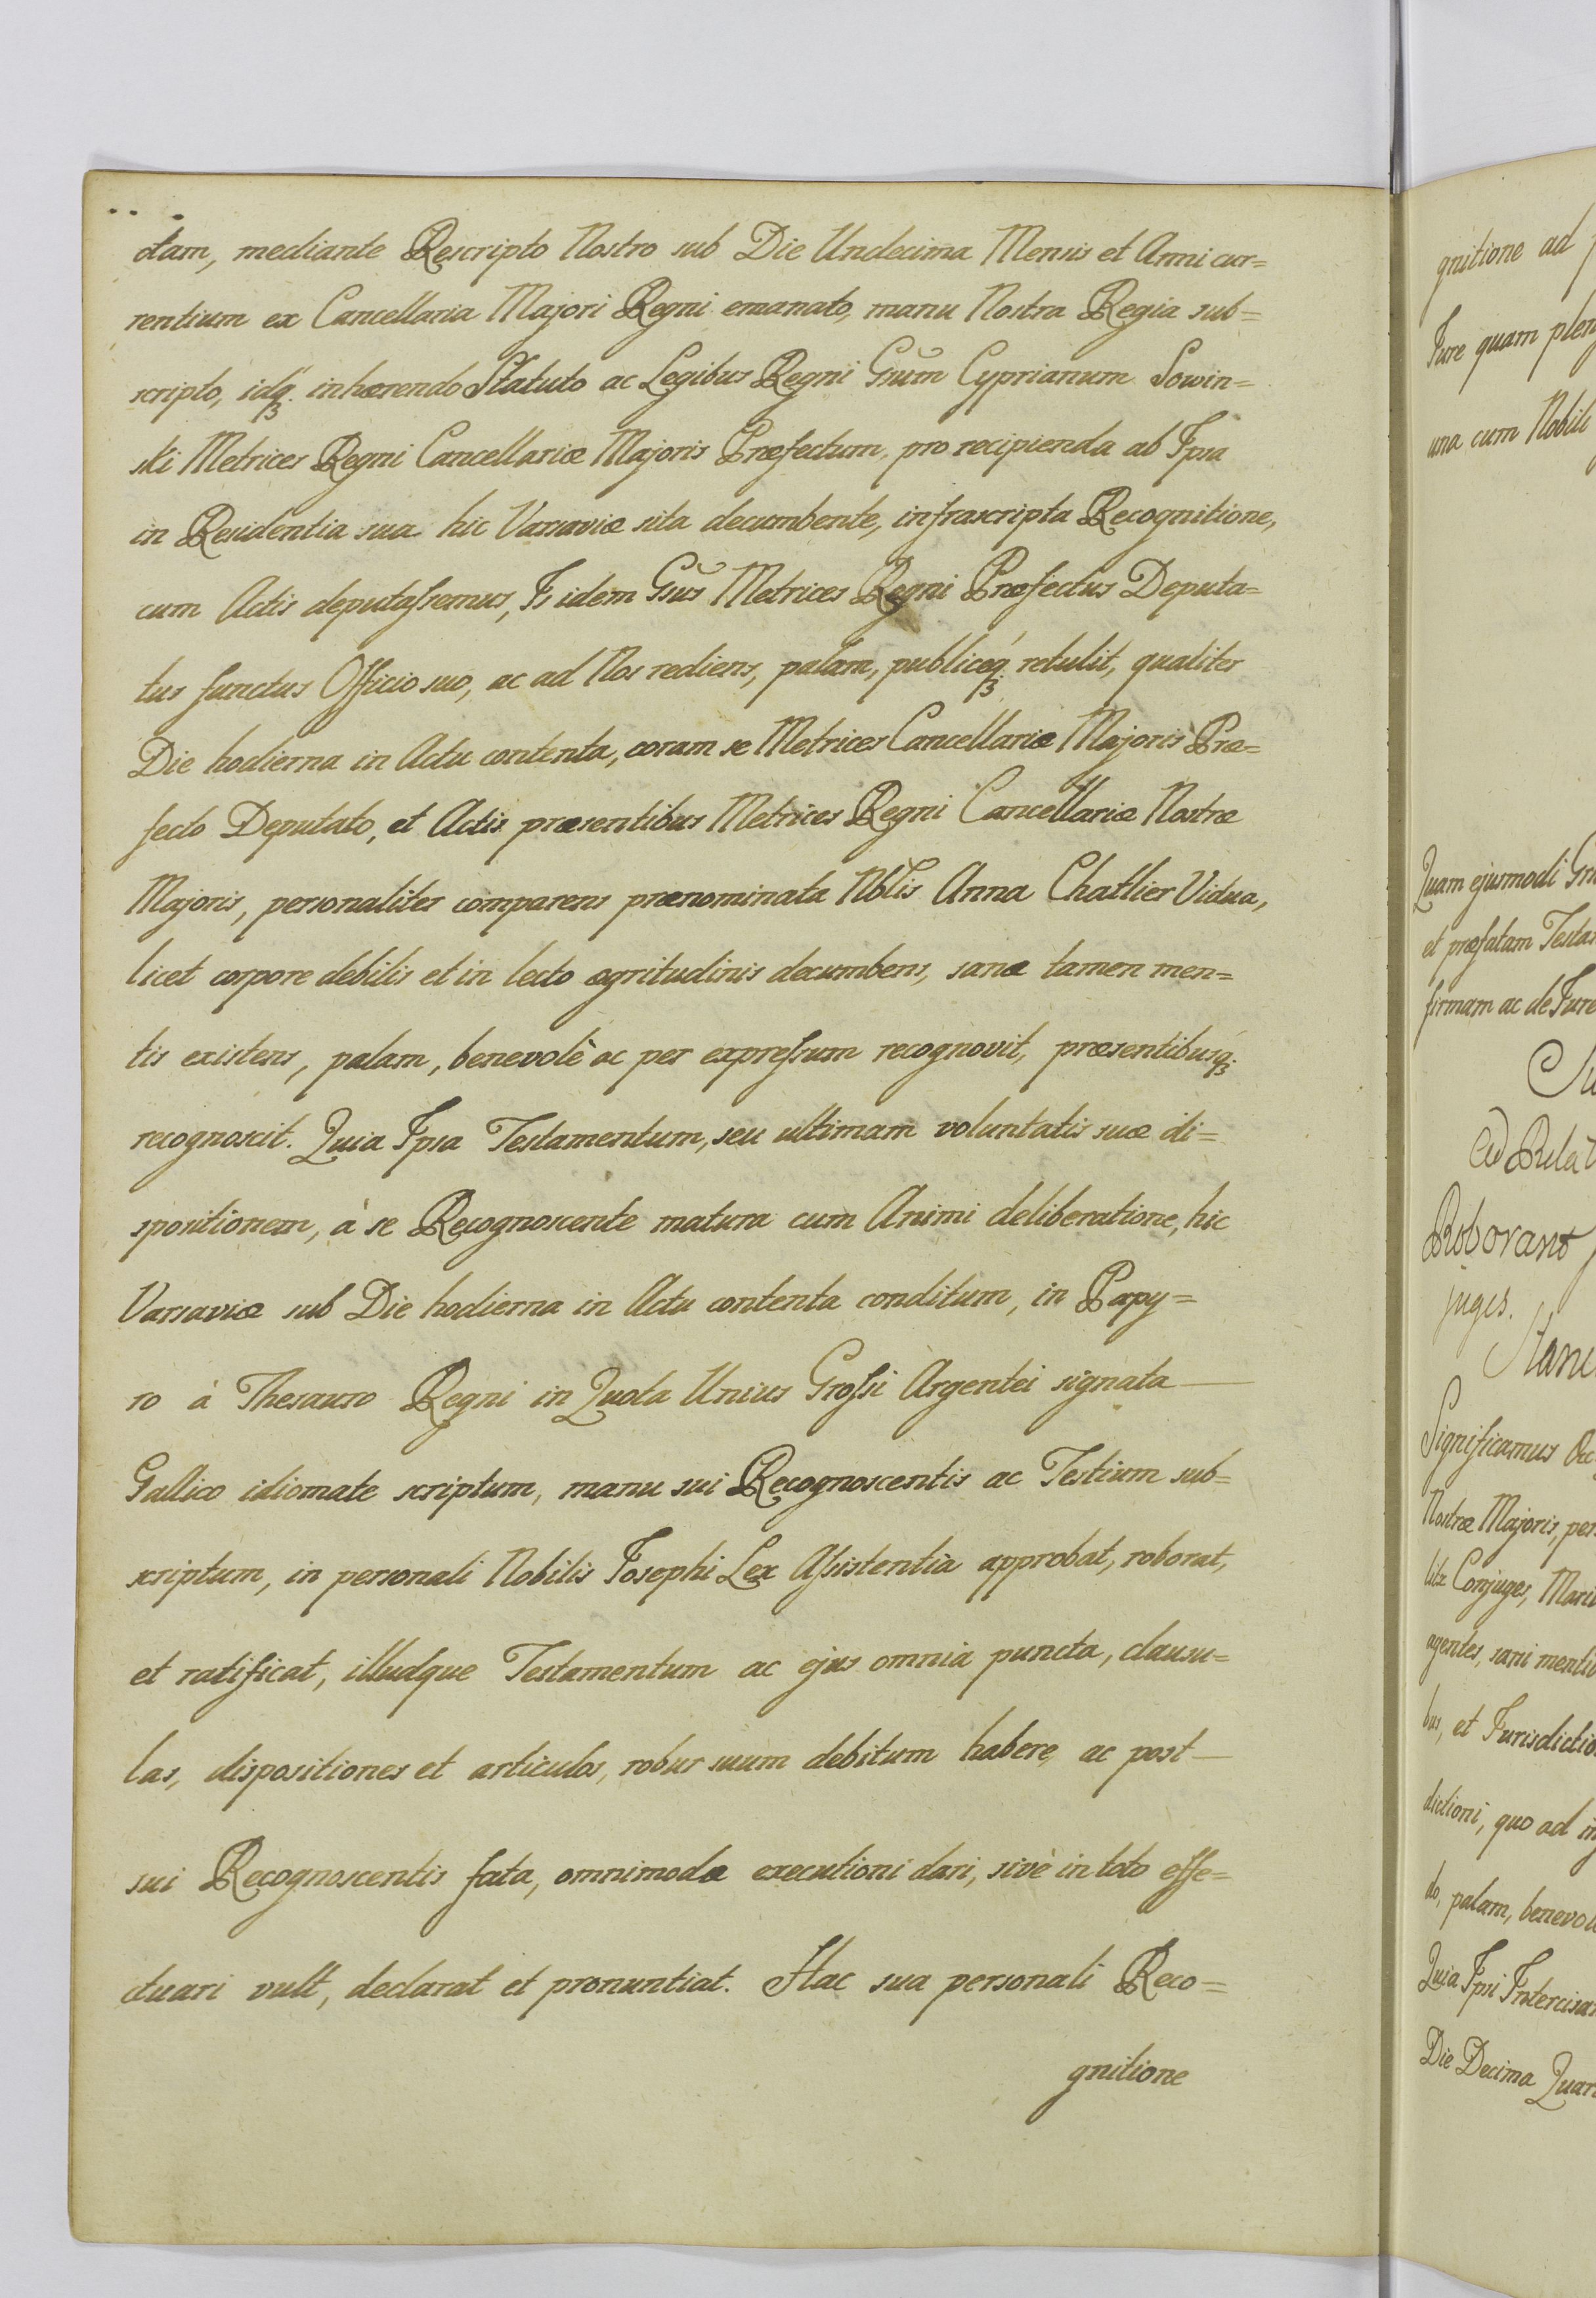 ctam, mediante Rescripto Nostro sub Die Undecima Mensis et Anni cur=
rentium ex Cancellaria Majori Regni emanato, manu Nostra Regia sub=
scripto, idq3. inhærendo Statuto ac Legibus Regni Gsum Cyprianum Sowin=
ski Metrices Regni Cancellariæ Majoris Præfectum, pro recipienda ab Ipsa
in Residentia sua hic Varsaviæ sita decumbente, infrascripta Recognitione,
cum Actis deputassemus, Is idem Gsus Metrices Regni Præfectus Deputa=
tus functus Officio suo, ac ad Nos rediens, palam, publiceq3 retulit, qualiter
Die hodierna in Actu contenta, coram se Metrices Cancellariæ Majoris Præ=
fecto Deputato, et Actis præsentibus Metrices Regni Cancellariæ Nostræ
Majoris, personaliter comparens prænominata Nblis Anna Chatlier Vidua,
licet corpore debilis et in lecto ægritudinis decumbens, sanæ tamen men=
tis existens, palam, benevolè ac per expressum recognovit, præsentibusq3
recognoscit. Quia Ipsa Testamentum, seu ultimam voluntatis suæ di=
spositionem, à se Recognoscente matura cum Animi deliberatione, hic
Varsaviæ sub Die hodierna in Actu contenta conditum, in Papy=
ro à Thesauro Regni in Quota Unius Grossi Argentei signata
Gallico idiomate scriptum, manu sui Recognoscentis ac Testium sub=
scriptum, in personali Nobilis Josephi Lex Assistentia approbat, roborat,
et ratificat, illudque Testamentum ac ejus omnia puncta, clausu=
las, dispositiones et articulos, robur suum debitum habere, ac post
sui Recognoscentis fata, omnimodæ executioni dari, sivè in toto effe=
ctuari vult, declarat et pronuntiat. Hac sua personali Reco=
gnitione
gnitione ad
Jure quam
una cum Nobili
Quam ejusmodi
et præfatam
firmam ac de Jure
Ad
Roborant
juges.
Significamus
Nostræ Majoris,
Conjuges,
agentes, sani
bus, et
dictioni, quo ad
do, palam,
Quia Ipsi
Die Decima